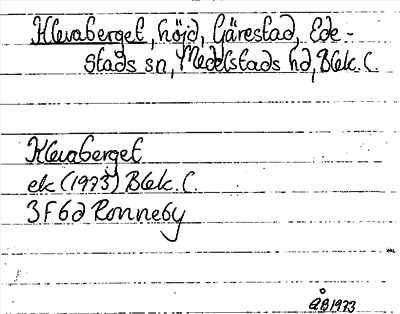 Klevaberget, höjd, Gärestad, Ede-
stads sn, Medelstads hd, Blek. l.
Klevaberget
ek (1973) Blek. l.
3F6d Ronneby
ÅB 1973